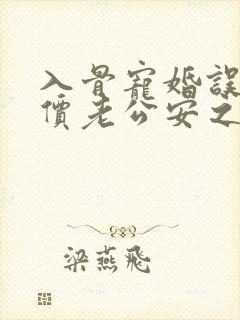 入骨寵婚誤
價老公安之
梁燕飛